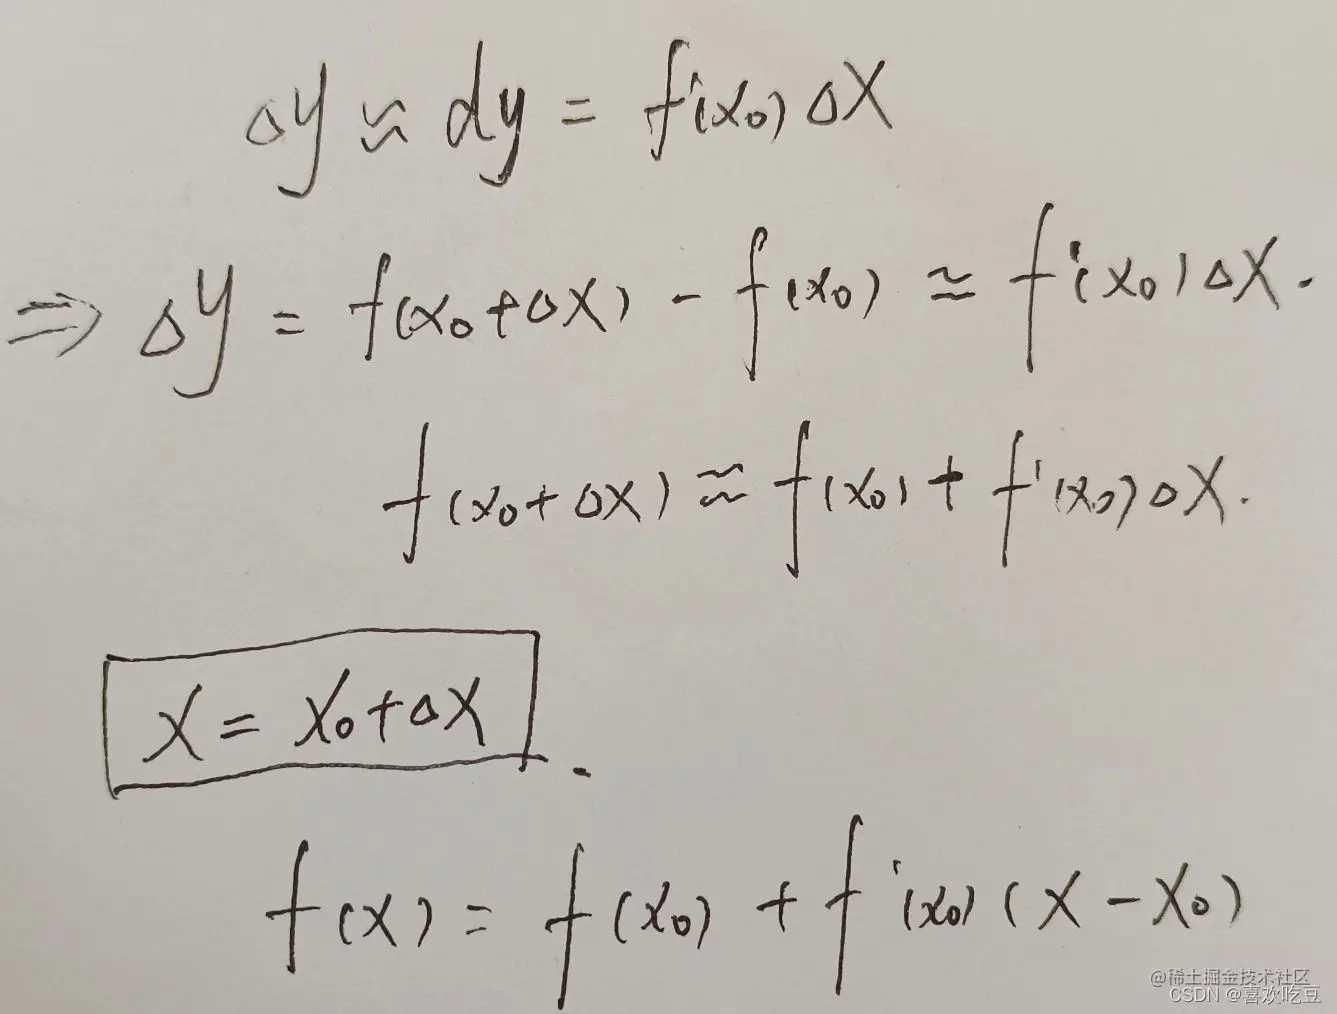 Δy ≈ dy = f'(x₀)Δx
⇒ Δy = f(x₀+Δx) - f(x₀) ≈ f'(x₀)Δx.
f(x₀+Δx) ≈ f(x₀) + f'(x₀)Δx.
x = x₀+Δx .
f(x) = f(x₀) + f'(x₀)(x-x₀)
@稀土掘金技术社区
CSDN @喜欢吃豆